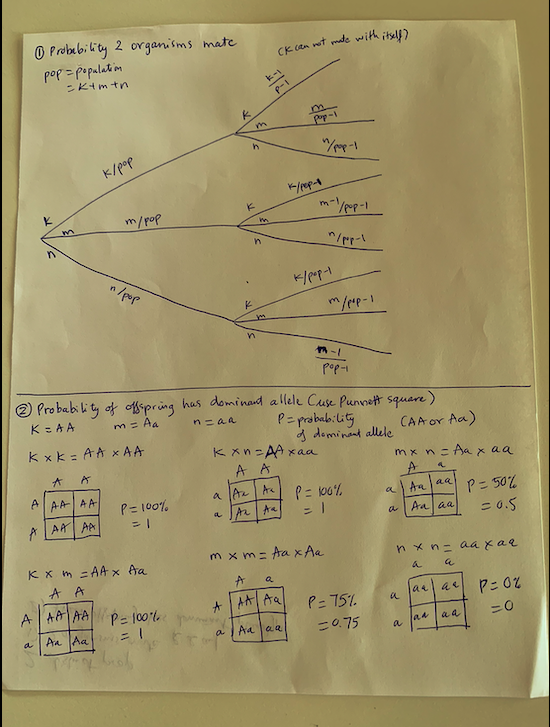 ① Probability 2 organisms mate
(K can not mate with itself)
pop = population
= K+m+n
K
m
n
K/pop
m/pop
n/pop
K
m
n
k-1
p-1
m
pop-1
n/pop-1
K
m
n
K/pop-1
m-1/pop-1
n/pop-1
K
m
n
K/pop-1
m/pop-1
m-1
pop-1
② Probability of offspring has dominant allele (use Punnett square)
K = AA m = Aa n = aa P = probability of dominant allele (AA or Aa)
K x K = AA x AA
A A
A AA AA
A AA AA
P = 100%
= 1
K x n = AA x aa
A A
a Aa Aa
a Aa Aa
P = 100%
= 1
m x n = Aa x aa
A a
a Aa aa
a Aa aa
P = 50%
= 0.5
K x m = AA x Aa
A A
A AA AA
a Aa Aa
P = 100%
= 1
m x m = Aa x Aa
A a
A AA Aa
a Aa aa
P = 75%
= 0.75
n x n = aa x aa
a a
a aa aa
a aa aa
P = 0%
= 0